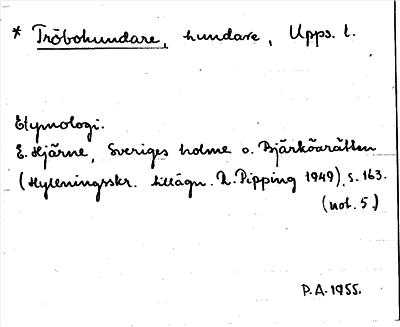 * Tröbohundare, hundare, Upps. l.
Etymologi.
E. Hjärne, Sveriges holme o. Bjärköarätten
(Hyllningsskr. tillägn. R. Pipping 1949), s. 163.
(not. 5.)
P.A. 1955.